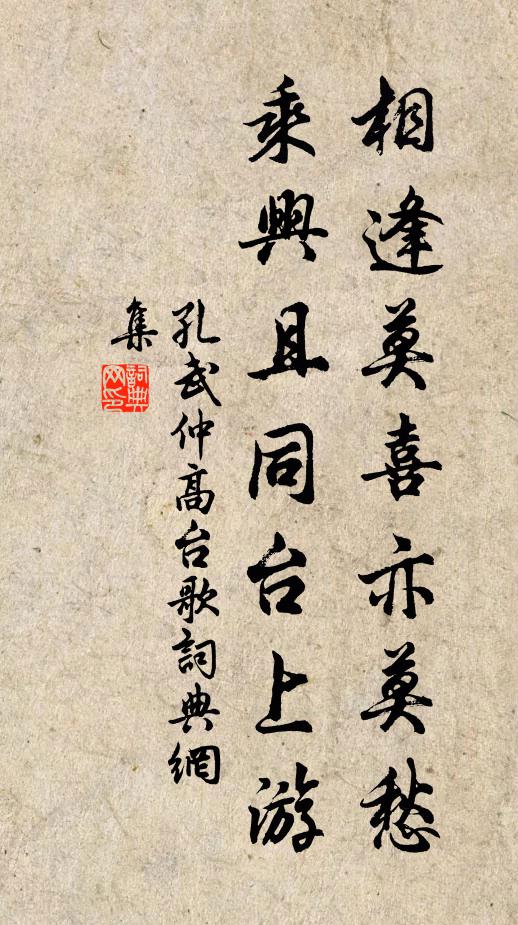 相逢莫喜亦莫愁
乘興且同台上游
孔武仲高台歌詞典網
集
詞典
网印